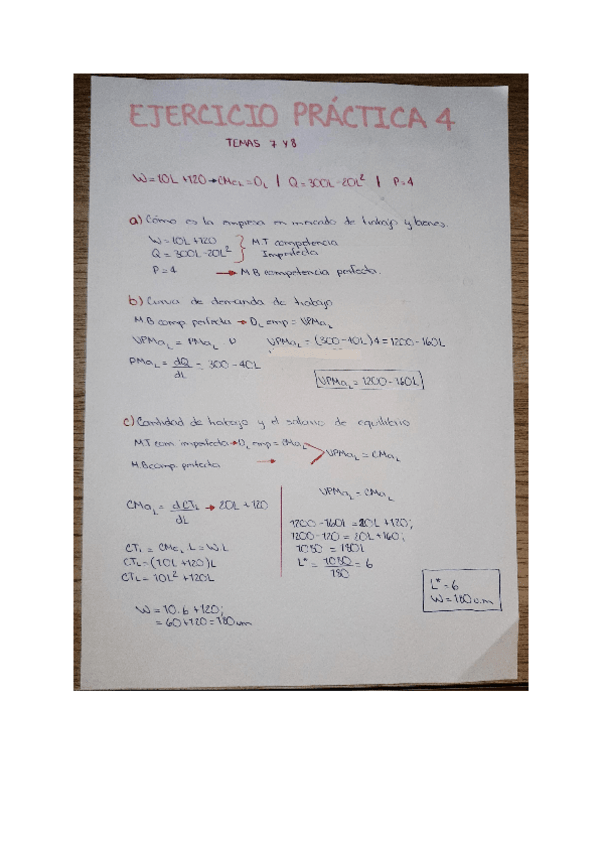 EJERCICIO PRÁCTICA 4
TEMAS 7 Y 8
W = 10L + 120 → CMeL = OL | Q = 300L - 20L² | P = 4
a) Cómo es la empresa en mercado de trabajo y bienes.
W = 10L + 120
Q = 300L - 20L²
} M.T competencia
Imperfecta
P = 4 → M B competencia perfecta.
b) Curva de demanda de trabajo
M B comp perfecta → DL emp = VPMaL
VPMaL = PMaL · P
VPMaL = (300 - 40L) 4 = 1200 - 160L
PMaL = dQ/dL = 300 - 40L
VPMaL = 1200 - 160L
c) Cantidad de trabajo y el salario de equilibrio
M T com imperfecta → OL emp = CMaL
M B comp. perfecta →
VPMaL = CMaL
CMaL = dCTL/dL → 20L + 120
CTL = CMeL · L = W·L
CTL = (10L + 120)L
CTL = 10L² + 120L
W = 10·6 + 120;
= 60 + 120 = 180 u.m
VPMaL = CMaL
1200 - 160L = 20L + 120;
1200 - 120 = 20L + 160;
1080 = 180L
L* = 1080/180 = 6
L* = 6
W = 180 u.m